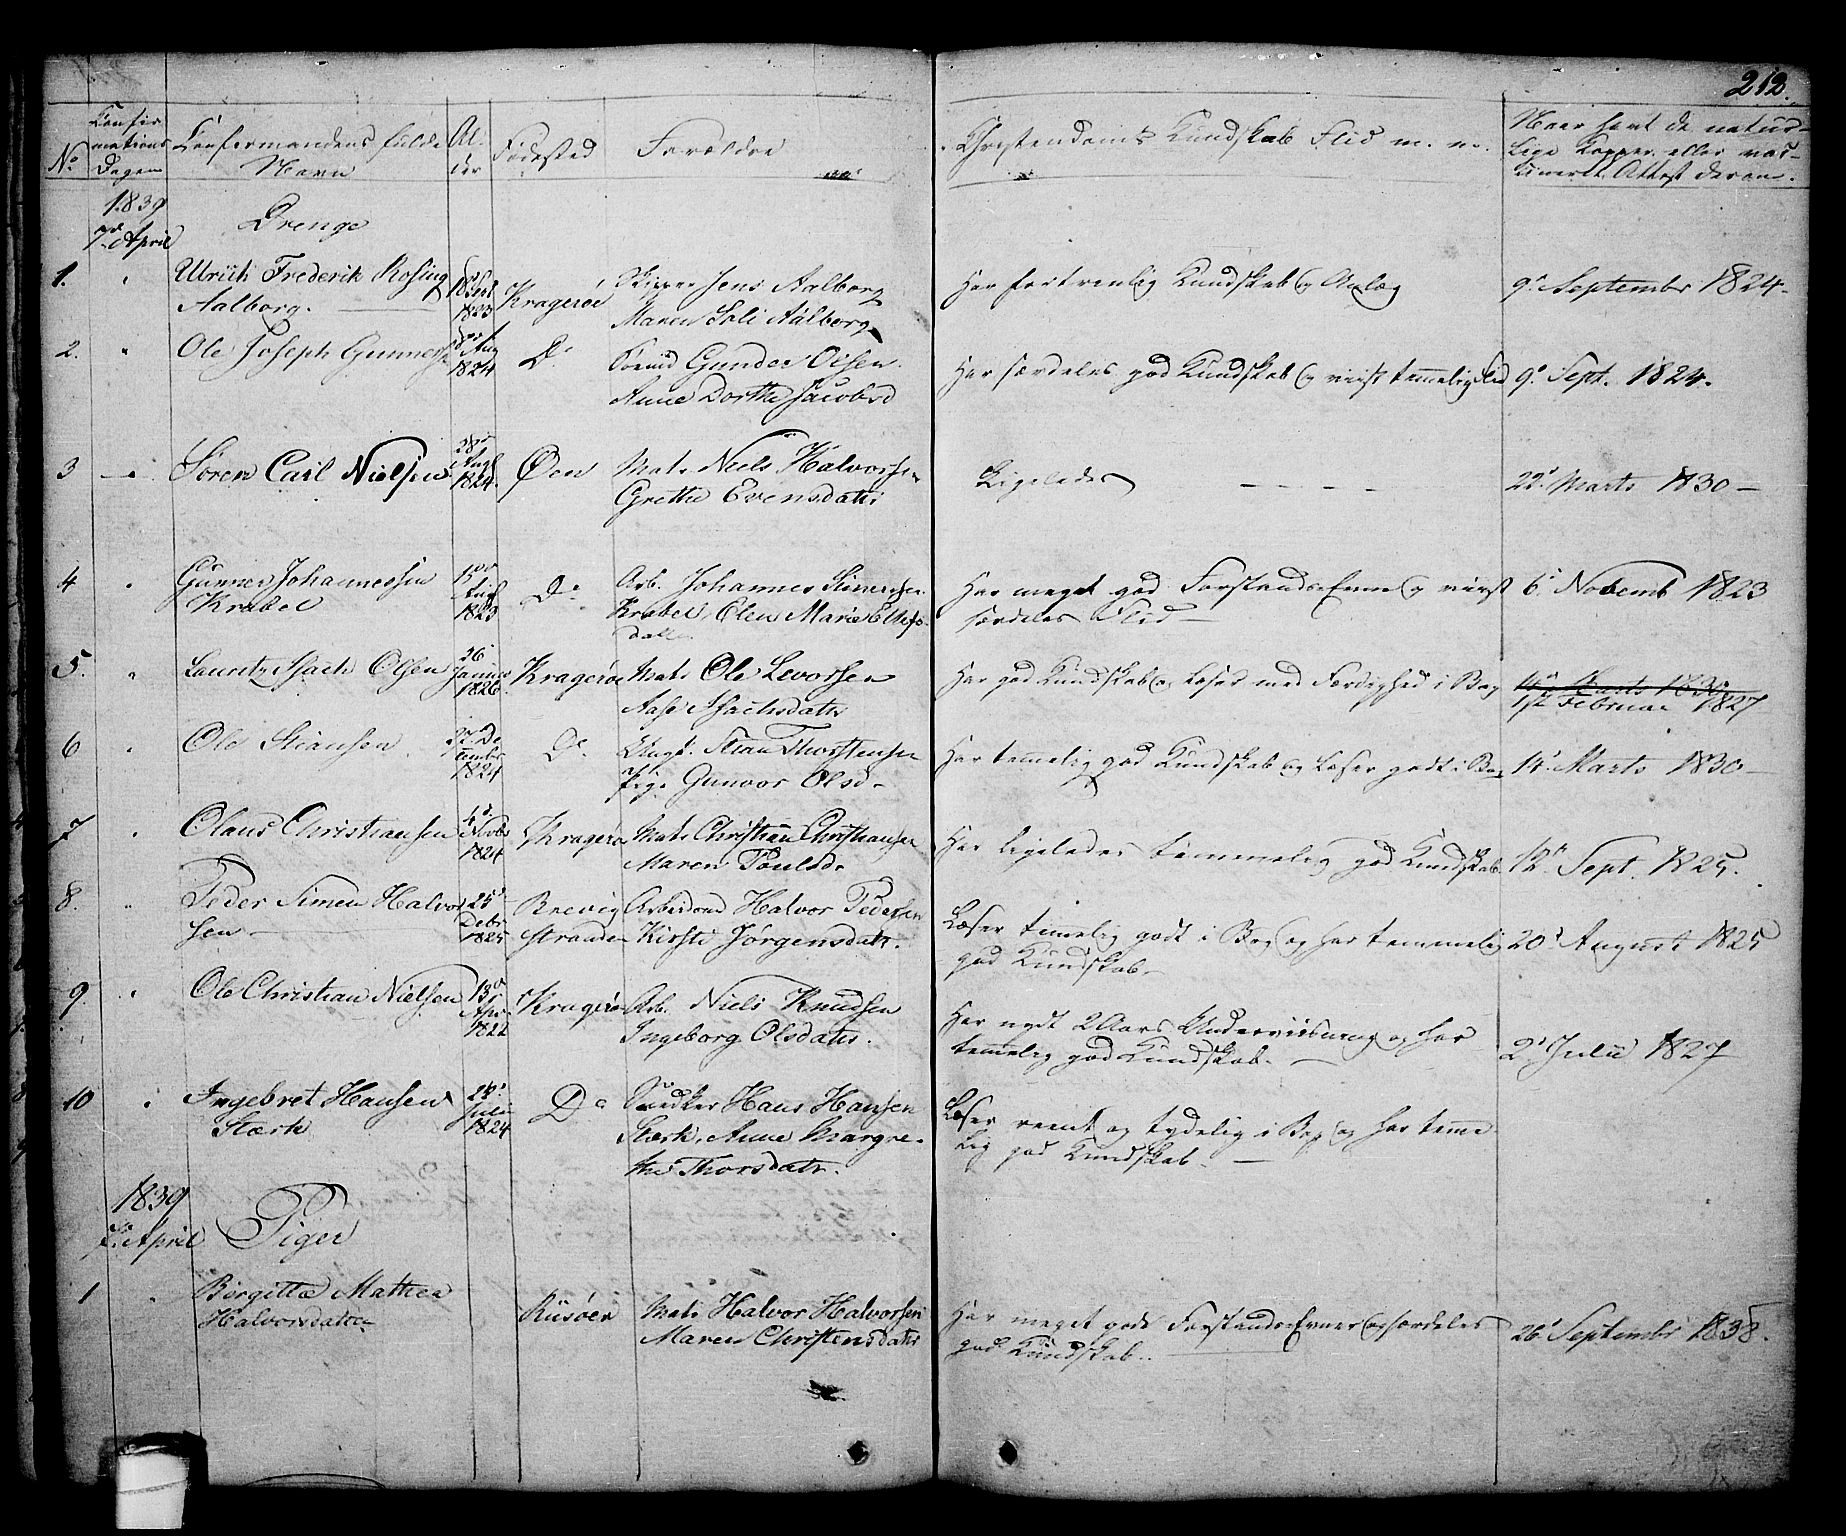 212.
No
Confir
mations
Dagen
Confirmandens fulde
Navn
Al-
der
Fødested
Forældre
Christendoms Kundskab Flid m. m.
Naar havt de natur-
lige Kopper eller vac-
cineret. Attest derom.
1839
7de April
Drenge
1.
Ulrich Frederik Rosing
Aalborg.
1823
Kragerøe
Skipper Jens Aalborg
Maren Aalborg
Har fortrinlig Kundskab og Anlæg
9d September 1824.
2.
Ole Joseph Gunners
Aug
1824
Do
Gunder Olsen
Anne Dorthe Jacobsd
Har særdeles god Kundskab og viist temmelig Flid
9d Sept. 1824.
3
Søren Carl Nielsen
28d
Aug
1824
Øen
Mats Niels Halvorsen
Grethe Evensdater
Ligeledes
22d Marts 1830
4
Gunner Johannessen
Krabel
Aug
1823
Do
Arb. Johannes Simensen
Krabel, Olen Maria Ellefs
datter
Har meget god Forstands Evne og viist
særdeles Flid
6d Novemb 1823
5.
Lauritz Isach Olsen
26
Januar
1826
Kragerøe
Mats Ole Levorsen
Aase Isachsdater
Har god Kundskab og Læser med Færdighed i Bog
Marts 1830
1ste Februar 1827
6
Ole Steansen
27 De
cember
1824
Do
Ungk. Stean Thorstensen
Pige Gunvor Olsd
Har temmelig god Kundskab og Læser godt i Bog
14d Marts 1830
7
Olaus Christiansen
4d
Novbr
1824
Kragerøe
Mats Christian Christiansen
Maren Poulsdr
Har ligeledes temmelig god Kundskab
12d Sept. 1825.
8.
Peder Simen Halvor
sen
25d
Debr
1825
Brevig
stranden
Arbeidsmd Halvor Pedersen
Kirsti Jørgensdatr.
Læser temelig godt i Bog og har temmelig
god Kundskab
20d August 1825
9.
Ole Christian Nielsen
13d
Apr.
1822
Kragerøe
Arb. Niels Knudsen
Ingeborg Olsdater.
Har nydt 2 Aars Underviisning og har
temelig god Kundskab.
2d Julii 1827
10
Ingebret Hansen
Stærk
Juli
1824
Do
Snedker Hans Hansen
Stærk, Anne Margre-
the Thorsdatr.
Læser reent og tydelig i Bog og har teme
lig god Kundskab.
1839
7de April
Piger
1
Birgitte Mathea
Halvorsdatter
Riisøer
Mats Halvor Halvorsen
Maren Christensdater
Har meget gode Forstands Evner og særdeles
god Kundskab.
26d September 1838.